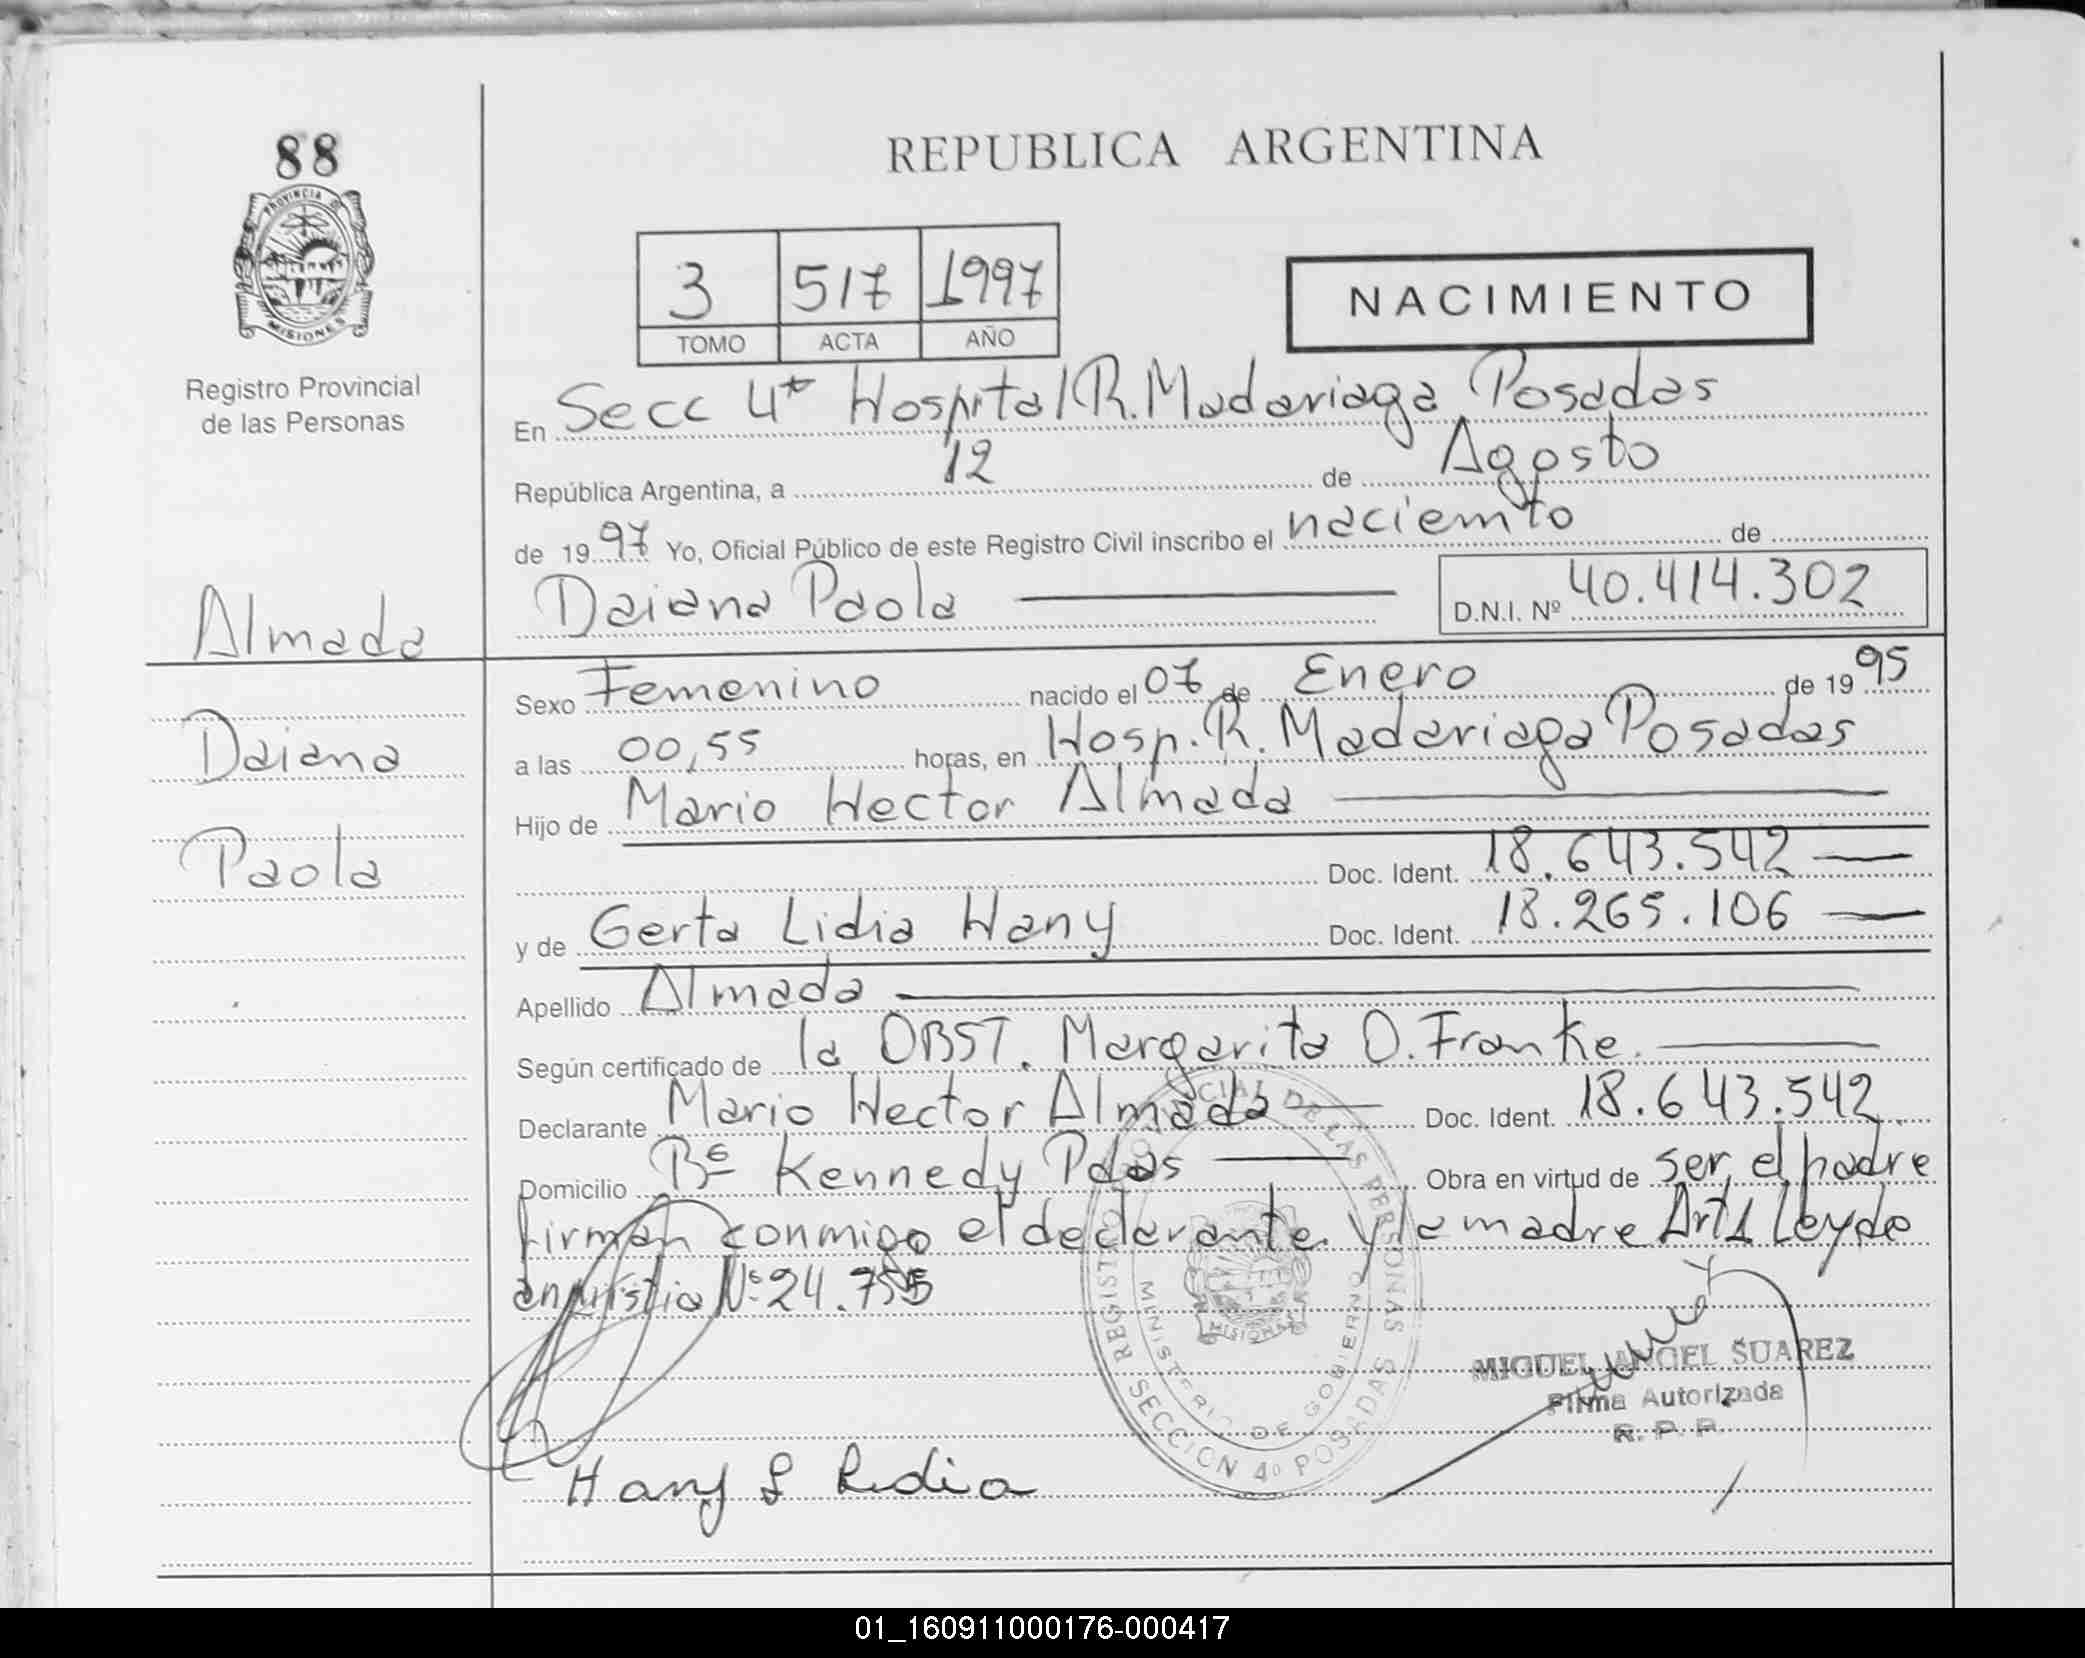 88
PROVINCIA D
MISIONES
Registro Provincial
de las Personas
REPUBLICA ARGENTINA
3 517 1997
TOMO ACTA AÑO
NACIMIENTO
En Secc 4ta Hospital R. Madariaga Posadas
República Argentina, a 12 de Agosto
de 1997 Yo, Oficial Público de este Registro Civil inscribo el naciemto de
Daiana Paola D.N.I. Nº 40.414.302
Almada
Daiana
Paola
Sexo Femenino nacido el 07 de Enero de 1995
a las 00,55 horas, en Hosp. R. Madariaga Posadas
Hijo de Mario Hector Almada
Doc. Ident. 18.643.542
y de Gerta Lidia Hany Doc. Ident. 18.265.106
Apellido Almada
Según certificado de la OBST. Margarita O. Franke.
Declarante Mario Hector Almada Doc. Ident. 18.643.542
Domicilio Bº Kennedy Pdas Obra en virtud de ser el padre
firman conmigo el declarante y la madre Art 1 Ley de
amnistia Nº 24.755
REGISTRO PROVINCIAL DE LAS PERSONAS
MINISTERIO DE GOBIERNO
MISIONES
SECCION 4º POSADAS
MIGUEL ANGEL SUAREZ
Firma Autorizada
R. P. P.
Hany G Lidia
01_160911000176-000417